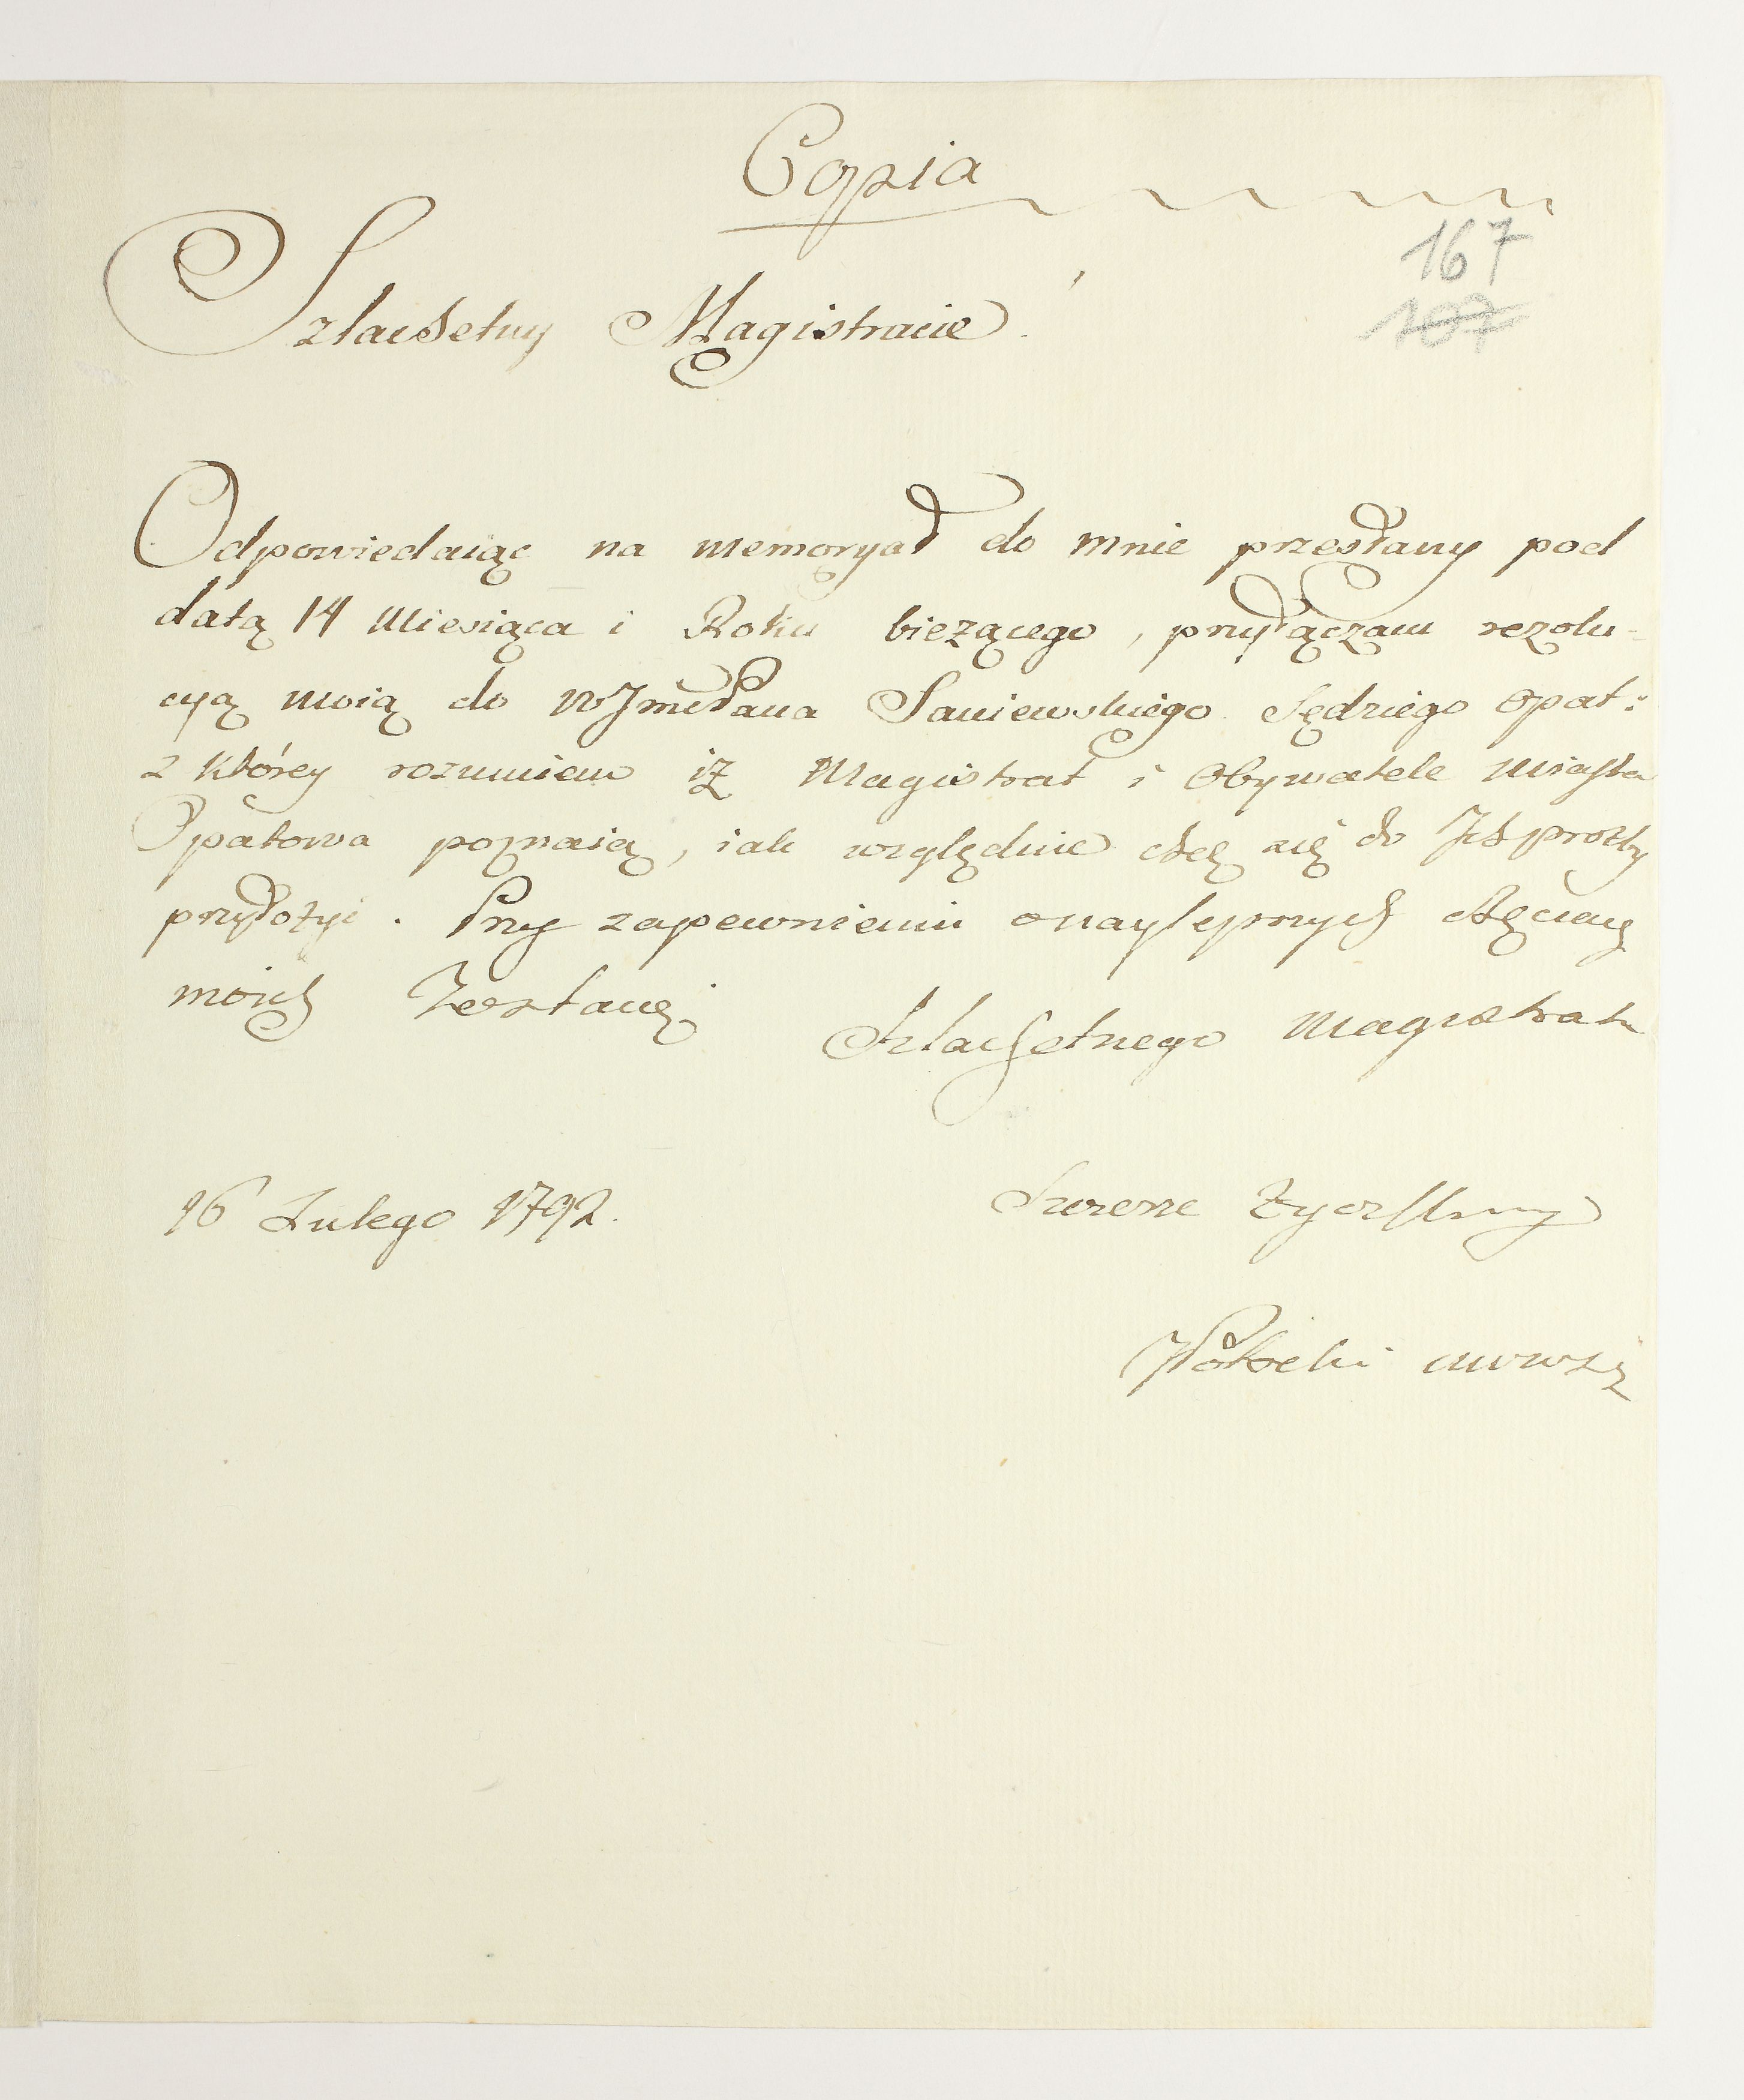 Copia
167
107
Szlachetny Magistracie
Odpowiedaiąc na memoryał do mnie przesłany pod
datą 14 Miesiąca i Roku bieżącego, przyłączam rezolu-
cyą moią do WJmćPana Saniewskiego Sędziego Opat:
z którey rozumiem iż Magistrat i Obywatele Miasta
Opatowa poznaią, iak względnie chcę się do Jch prozby
przyłożyć. Przy zapewnieniu o naylepszych chęciach
moich Zostaię
Szlachetnego Magistratu
16 Lutego 1792.
Szczerze Życzliwy
Potocki